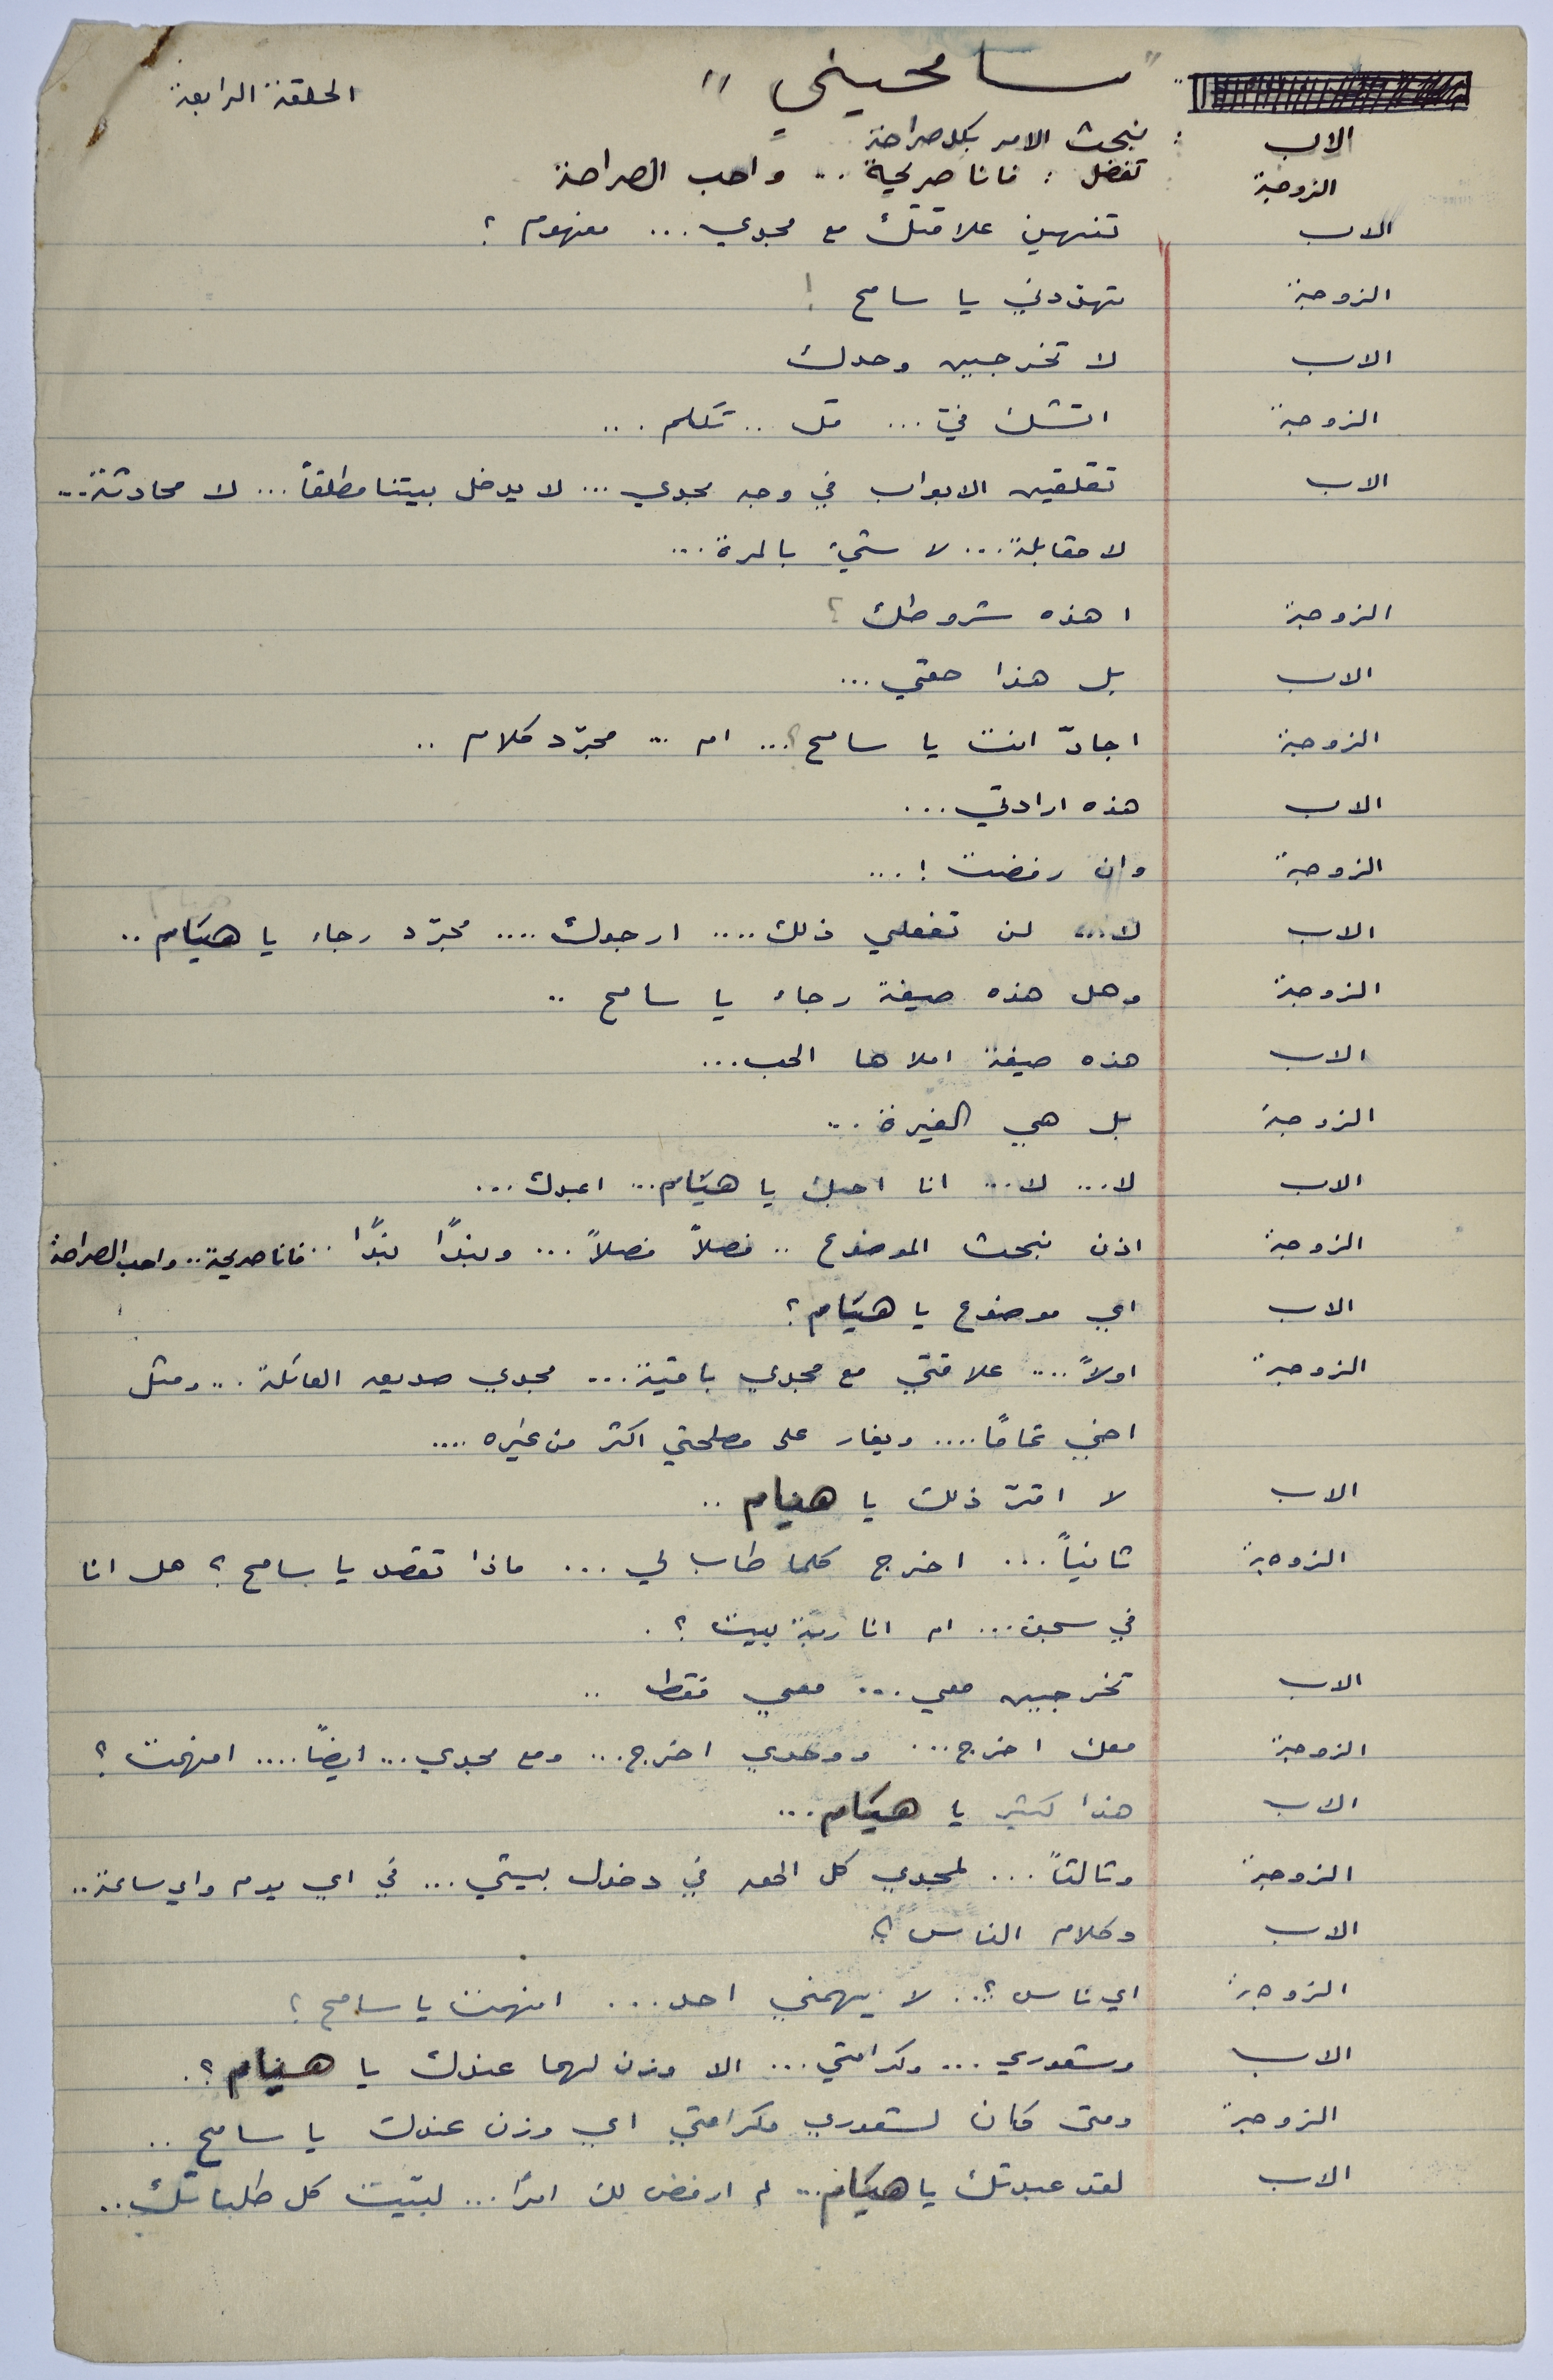 "سامحيني" الحلقة الرابعة
الاب : نبحث الامر بكل صراحة
الزوجة تفضل : فانا صريحة .. واحب الصراحة
الاب تنهين علاقتك مع مجدي ... مفهوم ؟
الزوجة تهددني يا سامح !
الاب لا تخرجين وحدك
الزوجة اتشك فيّ ... قل .. تكلم ...
الاب تقلقين الابواب في وجه مجدي ... لا يدخل بيتنا مطلقاً ... لا محادثة ...
لا مقابلة ... لا شيء بالمرة ...
الزوجة اهذه شروطك ؟
الاب بل هذا حقي ...
الزوجة اجادّ انت يا سامح ؟... ام ... مجرّد كلام ..
الاب هذه ارادتي ...
الزوجة وان رفضت ! ...
الاب لا... لن تفعلي ذلك .... ارجوك .... مجرّد رجاء يا هيام ..
الزوجة وهل هذه صيغة رجاء يا سامح ..
الاب هذه صيغة املاها الحب ...
الزوجة بل هي الغيرة ...
الاب لا ... لا ... انا احبك يا هيام ... اعبدك ...
الزوجة اذن نبحث الموضوع .. فصلاً فصلاً ... وبندًا بندًا .. فانا صريحة .. واحب الصراحة
الاب اي موضوع يا هيام ؟
الزوجة اولاً .... علاقتي مع مجدي باقية ... مجدي صديق العائلة ... ومثل
اخي تمامًا .... ويغار على مصلحتي اكثر من غيره ....
الاب لا اقرّ ذلك يا هيام ..
الزوجة ثانياً ... اخرج كلما طاب لي ... ماذا تقصد يا سامح ؟ هل انا
في سجن ... ام انا ربّة بيت ؟ .
الاب تخرجين معي ... معي فقط ..
الزوجة معك اخرج ... ووحدي اخرج ... ومع مجدي ... ايضاً .... افهمت ؟
الاب هذا كثير يا هيام ...
الزوجة وثالثاً ... لمجدي كل الحق في دخول بيتي ... في اي يوم واي ساعة ..
الاب وكلام الناس ؟
الزوجة اي ناس ؟.. لا يهمني احد ... افهمت يا سامح ؟
الاب وشعوري ... وكرامتي ... الا وزن لهما عندك يا هيام ؟ .
الزوجة ومتى كان لشعوري وكرامتي اي وزن عندك يا سامح ..
الاب لقد عبدتك يا هيام ... لم ارفض لك امرًا ... لبّيت كل طلباتك ..